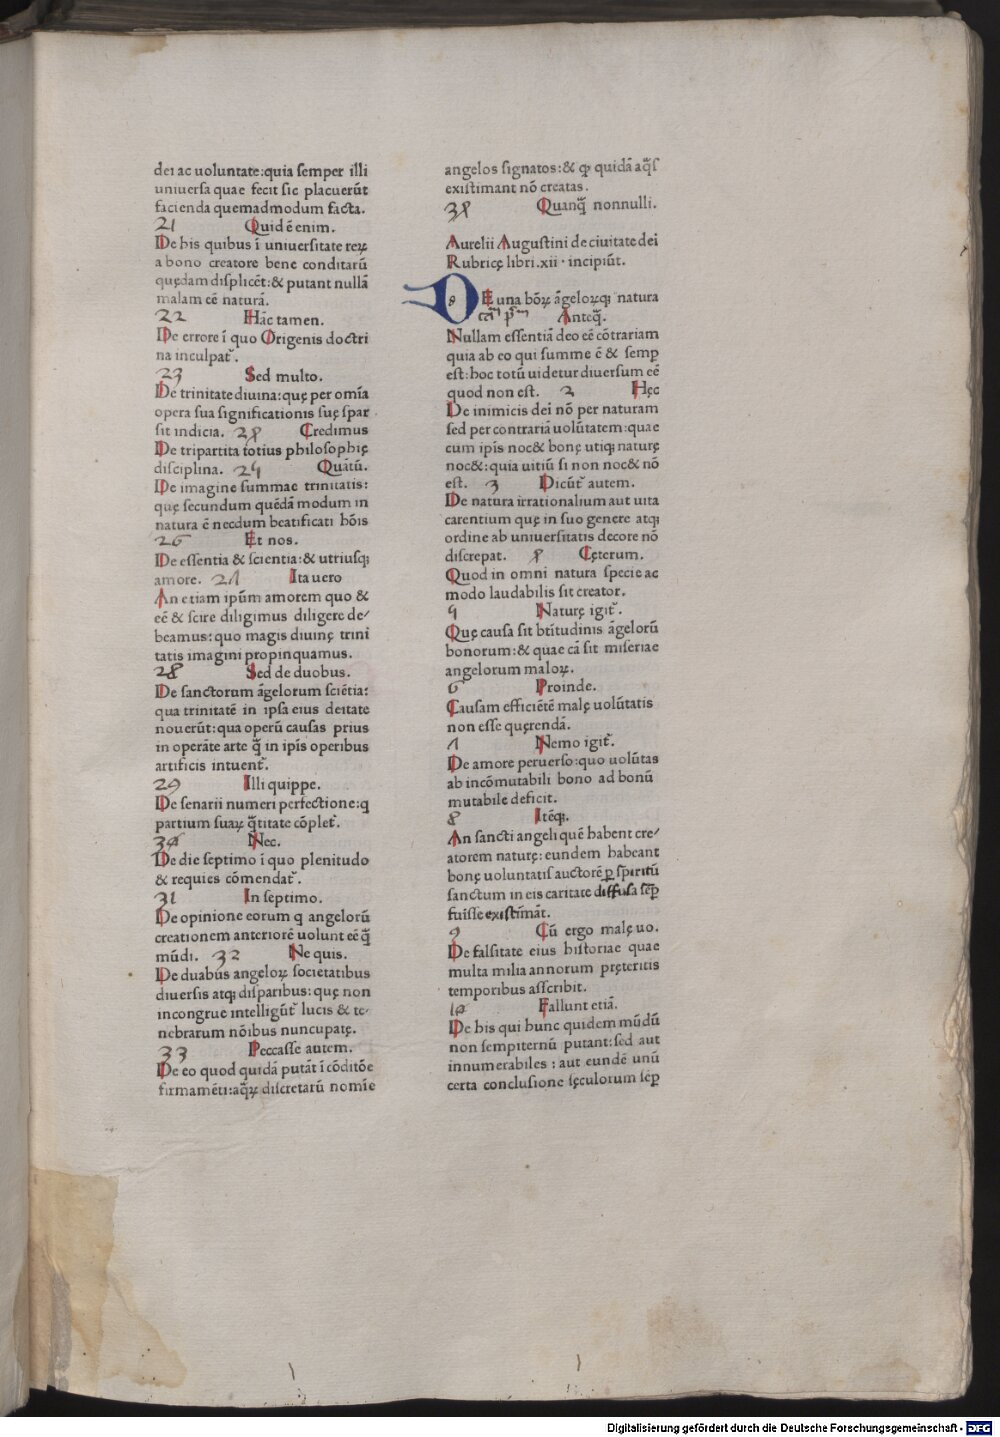 dei ac uoluntate:quia semper illi
uniuersa quae fecit sic placuerūt
facienda quemadmodum facta.
21 Quid ē enim.
De his quibus ī uniuersitate reꝝ
a bono creatore bene conditarū
quędam displicēt:& putant nullā
malam eē naturā.
22 Hāc tamen.
De errore ī quo Origenis doctri
na inculpat᷑.
23 Sed multo.
De trinitate diuina:quę per omīa
opera sua significationis suę spar
sit indicia. 24 Credimus
De tripartita totius philosophię
disciplina. 25 Quātū.
De imagine summae trinitatis:
quę secundum quēdā modum in
natura ē necdum beatificati hōis
26 Et nos.
De essentia & scientia:& utriusqꝫ
amore. 27 Ita uero
An etiam ipūm amorem quo &
eē & scire diligimus diligere de/
beamus:quo magis diuinę trini
tatis imagini propinquamus.
28 Sed de duobus.
De sanctorum āgelorum sciētia:
qua trinitatē in ipsa eius deitate
nouerūt:qua operū causas prius
in operāte arte q̄ in ipīs operibus
artificis intuent᷑.
29 Illi quippe.
De senarii numeri perfectione:q
partium suaꝝ q̄titate cōplet᷑.
30 Nec.
De die septimo ī quo plenitudo
& requies cōmendat᷑.
31 In septimo.
De opinione eorum q angelorū
creationem anteriorē uolunt eē q̄
mūdi. 32 Ne quis.
De duabus angeloꝝ societatibus
diuersis atqꝫ disparibus: quę non
incongrue intelligūt᷑ lucis & te-
nebrarum nōibus nuncupatę.
33 Peccasse autem.
De eo quod quidā putāt ī cōditōe
firmamēti:aq̄ꝝ discretarū nomīe
angelos signatos:& ꝙ quidā aq̄s
existimant nō creatas.
34 Quanq̄ nonnulli.
Aurelii Augustini de ciuitate dei
Rubricę libri.xii·incipiūt.
DE una bōꝝ āgeloꝝqꝫ natura
Anteq̄.
Nullam essentiā deo eē cōtrariam
quia ab eo qui summe ē & semꝑ
est:hoc totū uidetur diuersum eē
quod non est. 2 Hęc
De inimicis dei nō per naturam
sed per contrariā uolūtatem:quae
cum ipīs noc& bonę utiqꝫ naturę
noc&:quia uitiū si non noc& nō
est. 3 Dicūt᷑ autem.
De natura irrationalium aut uita
carentium quę in suo genere atqꝫ
ordine ab uniuersitatis decore nō
discrepat. 4 Cęterum.
Quod in omni natura specie ac
modo laudabilis sit creator.
5 Naturę igit᷑.
Quę causa sit btītudinis āgelorū
bonorum:& quae cā sit miseriae
angelorum maloꝝ.
6 Proinde.
Causam efficiētē malę uolūtatis
non esse quęrendā.
7 Nemo igit᷑.
De amore peruerso:quo uolūtas
ab incōmutabili bono ad bonū
mutabile deficit.
8 Itēqꝫ.
An sancti angeli quē habent cre/
atorem naturę:eundem habeant
bonę uoluntatis auctorē ꝑ spiritū
sanctum in eis caritate diffusa sēꝑ
fuisse existimāt.
9 Cū ergo malę uo.
De falsitate eius historiae quae
multa milia annorum pręteritis
temporibus asscribit.
10 Fallunt etiā.
De his qui hunc quidem mūdū
non sempiternū putant:sed aut
innumerabiles : aut eundē unū
certa conclusione sęculorum sēꝑ
Digitalisierung gefördert durch die Deutsche Forschungsgemeinschaft - DFG